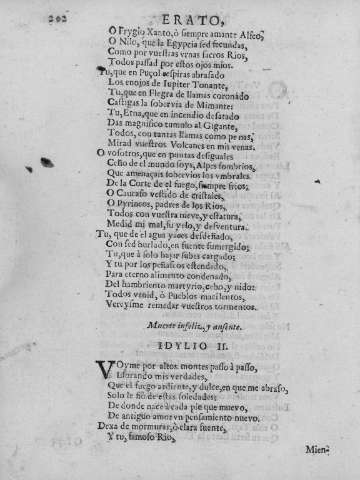 202 ERATO,
O Frygio Xanto, ò siempre amante Alfeo,
O Nilo, que la Egypcia sed fecundas,
Como por vuestras vrnas sacros Rios,
Todos passad por estos ojos mios.
Tu, que en Puçol respiras abrasado
Los enojos de Iupiter Tonante,
Tu, que en Flegra de llamas coronado
Castigas la sobervia de Mimante:
Tu, Etna, que en incendio desatado
Das magnifico tumulo al Gigante,
Todos, con tantas llamas como penas,
Mirad vuestros Volcanes en mis venas.
O vosotros, que en puntas desiguales
Ceño del mundo soys, Alpes sombrios,
Que amenaçais sobervios los vmbrales
De la Corte de el fuego, siempre frios;
O Caucaso vestido de cristales,
O Pyrineos, padres de los Rios,
Todos con vuestra nieve, y estatura,
Medid mi mal, su yelo, y desventura.
Tu, que de el agua yaces desdeñado,
Con sed burlado, en fuente sumergido;
Tu, que à solo bajar subes cargado;
Y tu por los peñascos estendado,
Para eterno alimento condenado,
Del hambriento martyrio, cebo, y nido:
Todos venid, ò Pueblos macilentos,
Vereysme remedar vuestros tormentos.
Muere infeliz, y ausente.
IDYLIO II.
VOyme por altos montes passo à passo,
Llorando mis verdades,
Que el fuego ardiente, y dulce, en que me abraso,
Solo le fio de estas soledades:
De donde nace à cada pie que muevo,
De antiguo amor vn pensamiento nuevo.
Dexa de mormurar, ò clara fuente,
Y tu, famoso Rio,
Mien-